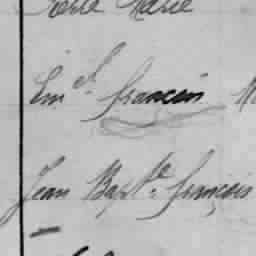 Marie
Em.el François
Jean Bapte François